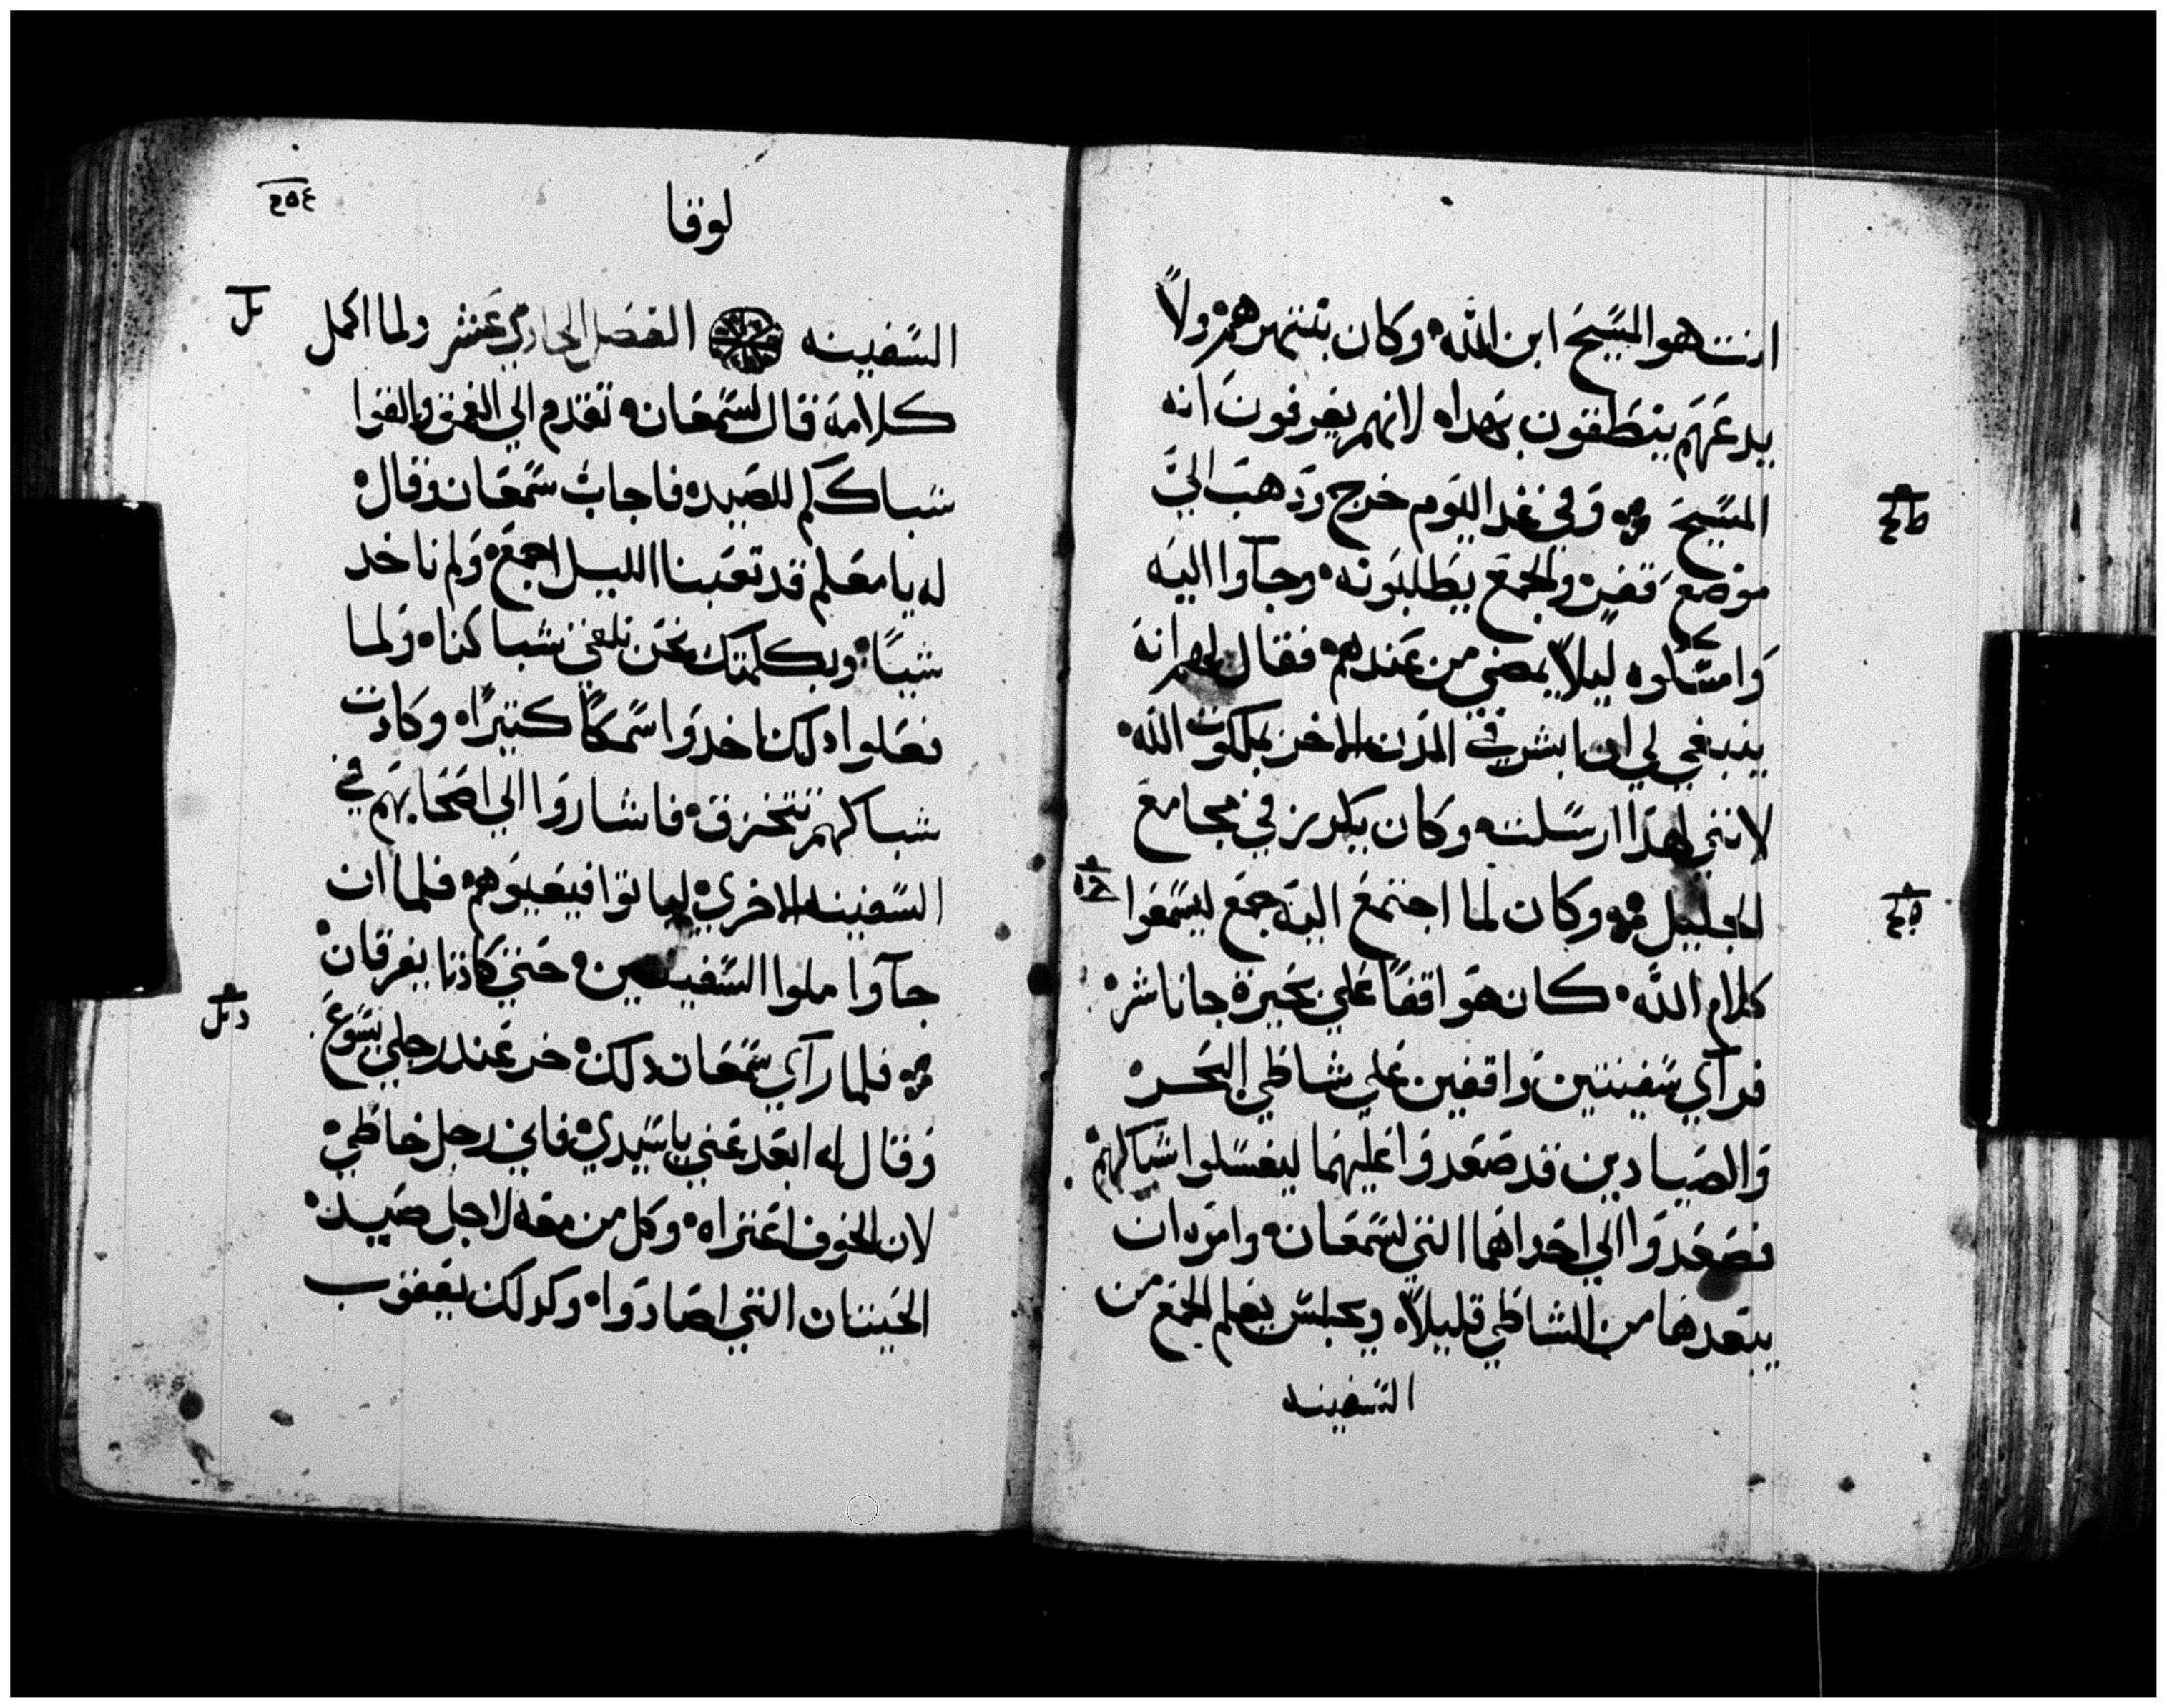 انت هو المسيح ابن الله وكان ينتهرهم ولا
يدعهم ينطقون بهدا لانهم يعرفون انه
المسيح وفي غد اليوم خرج ودهب الي
موضع قفر والجمع يطلبونه وجآوا اليه
وامسكوه ليلا يمضي من عندهم فقال لهم انه
ينبغي لي ان ابشر في المدن الاخر بملكوت الله
لانني لهذا ارسلت وكان يكرز في مجامع
الجليل وكان لما اجتمع اليه جمع ليسمعوا
كلام الله كان هو اقفا علي بحيرة جاناشر
فرآي سفينتين واقفين علي شاطي البحر
والصيادين قد صعدوا عليهما ليغسلوا شباكهم
فصعدوا الي احداهما التي لسمعان وامره ان
يبعدها من الشاطي قليلا وجلس يعلم الجمع من
السفينه
لوقا
السفينه الفصل الحادي عشر ولما اكمل
كلامه قال لسمعان تقدم الي العمق والقوا
شباككم للصيد فاجاب سمعان وقال
له يا معلم قد تعبنا الليل اجمع ولم ناخد
شيا وبكلمتك نحن نلقي شباكنا ولما
فعلوا دلك اخدوا سمكا كتيرا وكادت
شباكهم تتخرق فاشاروا الي اصحابهم في
السفينه الاخري لياتوا فيعينوهم فلما ان
جآوا ملوا السفينتين حتي كادتا يغرقان
فلما رآي سمعان دلك خر عند رجلي يسوع
وقال له ابعد عني يا سيدي فاني رجل خاطي
لان الخوف اعتراه وكل من معه لاجل صيد
الحيتان التي اصادوا وكدلك يعقوب